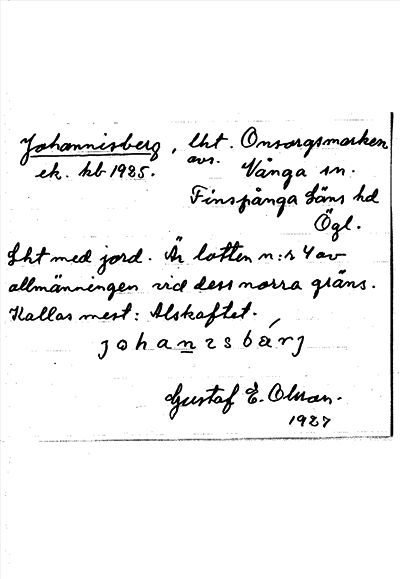 Johannisberg, lht. Onsorgsmarken
avs.
ek. kb 1925. Vånga sn.
Finspånga läns hd
Ögl.
Lht med jord. Är lotten n:r 4 av
allmänningen vid dess norra gräns.
Kallas mest: Alskaftet.
johanisbärj
Gustaf E. Olsson.
1927